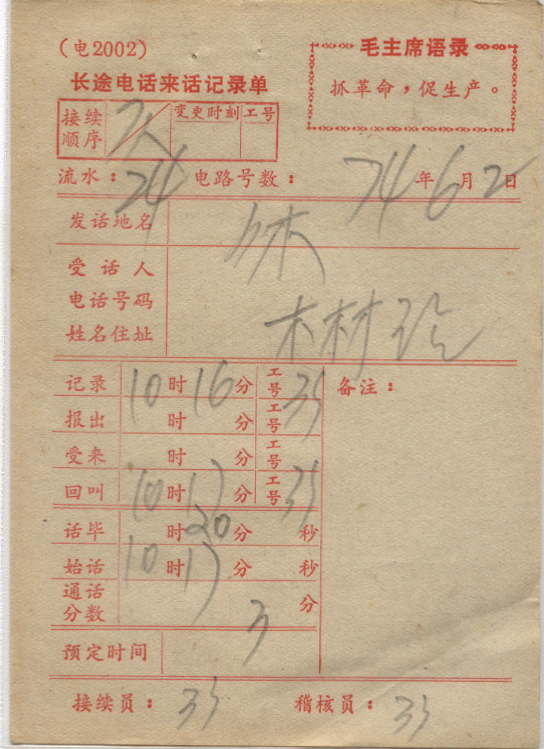 (电2002)
毛主席语录
长途电话来话记录单
抓革命，促生产。
接续顺序 变更时刻 工号
流水：24 电路号数： 74年6月2日
发话地名
受话人
电话号码
姓名住址
记录 10时16分 工号 35 备注：
报出 时 分 工号
受来 时 分 工号
回叫 10时17分 工号 35
话毕 时20分 秒
始话 10时17分 秒
通话分数 3 分
预定时间
接续员：35 稽核员：35